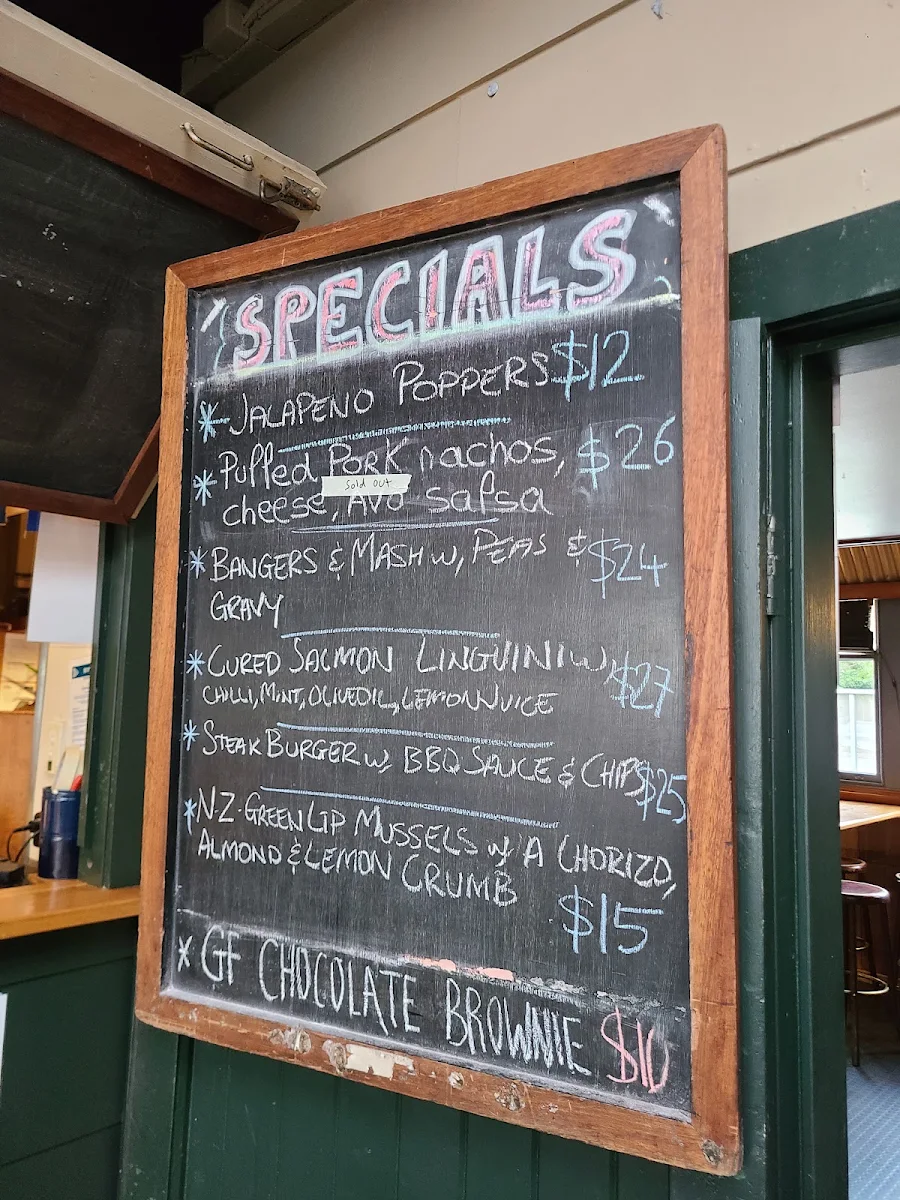 SPECIALS
* JALAPENO POPPERS $12
* Pulled PORK nachos, $26
sold out
cheese, Avo salsa
* BANGERS & MASH W, PEAS & $24
GRAVY
* CURED SALMON LINGUINI W, $27
CHILLI, MINT, OLIVEOIL, LEMON JUICE
* STEAK BURGER W, BBQ SAUCE & CHIPS $25
* N.Z. GREEN LIP MUSSELS W/ A CHORIZO,
ALMOND & LEMON CRUMB
$15
* GF CHOCOLATE BROWNIE $10